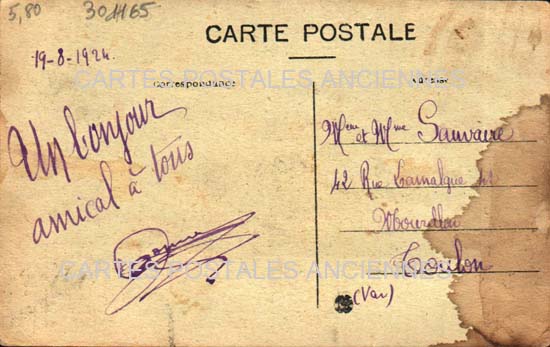 5,80 301165
CARTE POSTALE
19-8-1924.
CARTES POSTALES ANCIENNES
Correspondance
Adresse
Un bonjour
amical à tous
Mr et Mme Sauvaire
42 Rue Lamalgue
Mourillon
Toulon
(Var)
CARTES POSTALES ANCIENNES